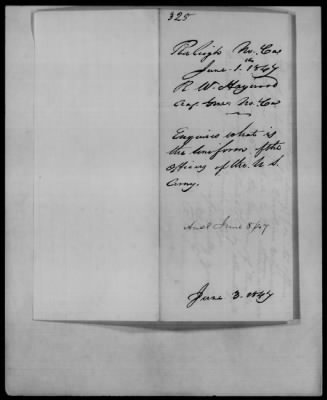 325
Raleigh No. Car
June 1st 1847
R. W. Haywood
Adj. Genl. No. Ca
Enquires what is
the uniform of the
officers of the U. S.
Army.
Ansd June 8/47
June 3. 1847